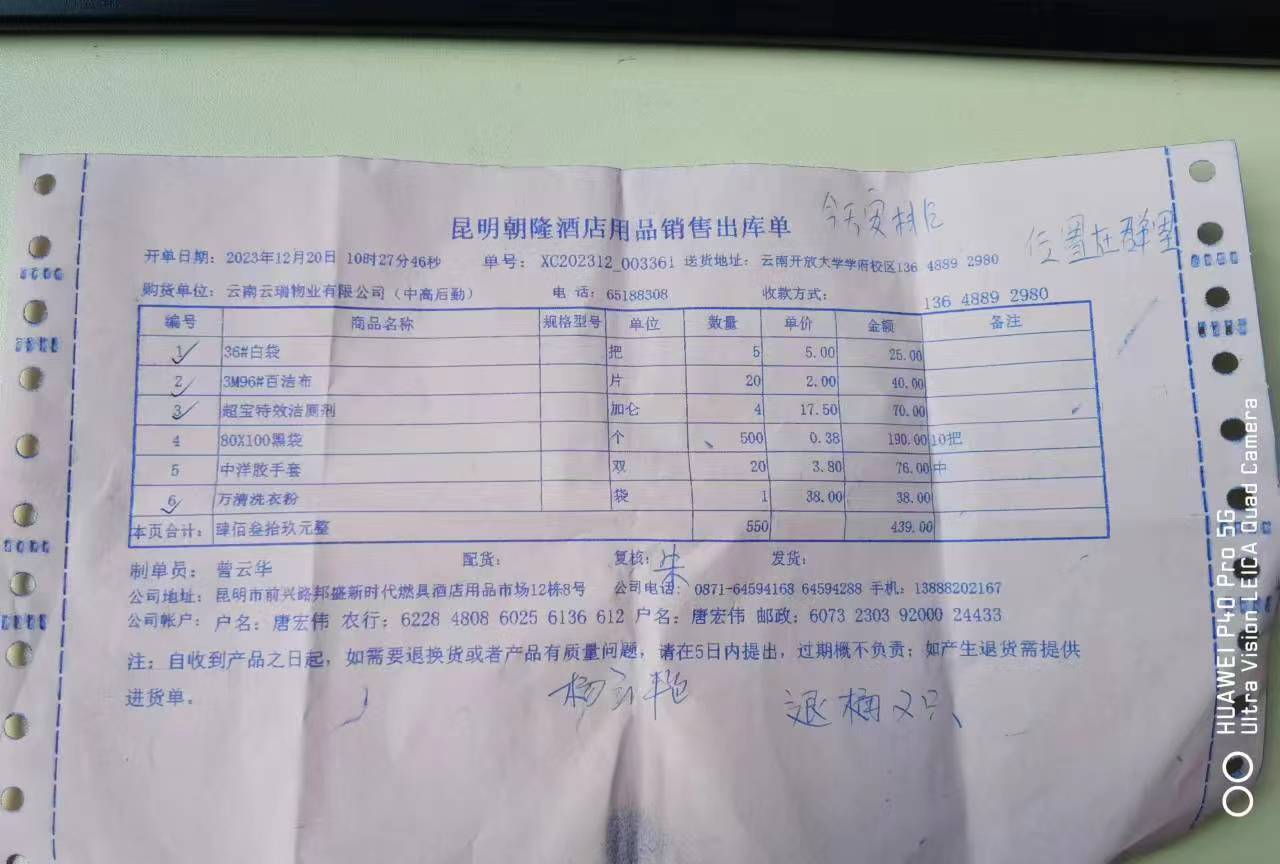 昆明朝隆酒店用品销售出库单
位置在群里
开单日期：2023年12月20日 10时27分46秒 单号：XC202312_003361 送货地址：云南开放大学学府校区136 4889 2980
购货单位：云南云瑞物业有限公司（中高后勤） 电 话：65188308 收款方式： 136 4889 2980
编号 商品名称 规格型号 单位 数量 单价 金额 备注
1 36#白袋 把 5 5.00 25.00
2 3M96#百洁布 片 20 2.00 40.00
3 超宝特效洁厕剂 加仑 4 17.50 70.00
4 80X100黑袋 个 500 0.38 190.00 10把
5 中洋胶手套 双 20 3.80 76.00 中
6 万清洗衣粉 袋 1 38.00 38.00
本页合计：肆佰叁拾玖元整 550 439.00
制单员：曾云华 配货： 复核：朱 发货：
公司地址：昆明市前兴路邦盛新时代燃具酒店用品市场12栋8号 公司电话：0871-64594168 64594288 手机：13888202167
公司帐户：户名：唐宏伟 农行：6228 4808 6025 6136 612 户名：唐宏伟 邮政：6073 2303 92000 24433
注：自收到产品之日起，如需要退换货或者产品有质量问题，请在5日内提出，过期概不负责；如产生退货需提供
进货单。
退桶2只
HUAWEI P40 Pro 5G
Ultra Vision LEICA Quad Camera